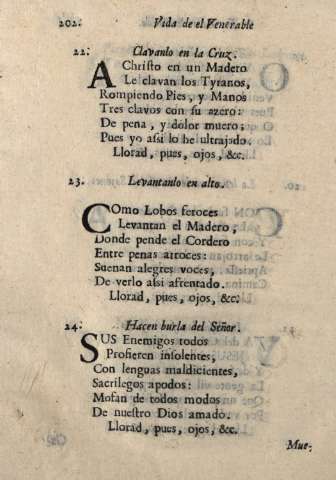 202. Vida de el Venerable
22. Clavanlo en la Cruz.
A Christo en un Madero
Le clavan los Tyranos,
Rompiendo Pies, y Manos
Tres clavos con su azero:
De pena, y dolor muero;
Pues yo assi lo he ultrajado.
Llorad, pues, ojos, &c.
23. Levantanlo en alto.
COmo Lobos feroces
Levantan el Madero,
Donde pende el Cordero
Entre penas atroces:
Suenan alegres voces,
De verlo assi afrentado.
Llorad, pues, ojos, &c.
24. Hacen burla del Señor.
SUS Enemigos todos
Profieren insolentes,
Con lenguas maldicientes,
Sacrilegos apodos:
Mofan de todos modos
De nuestro Dios amado.
Llorad, pues, ojos, &c.
Mue-